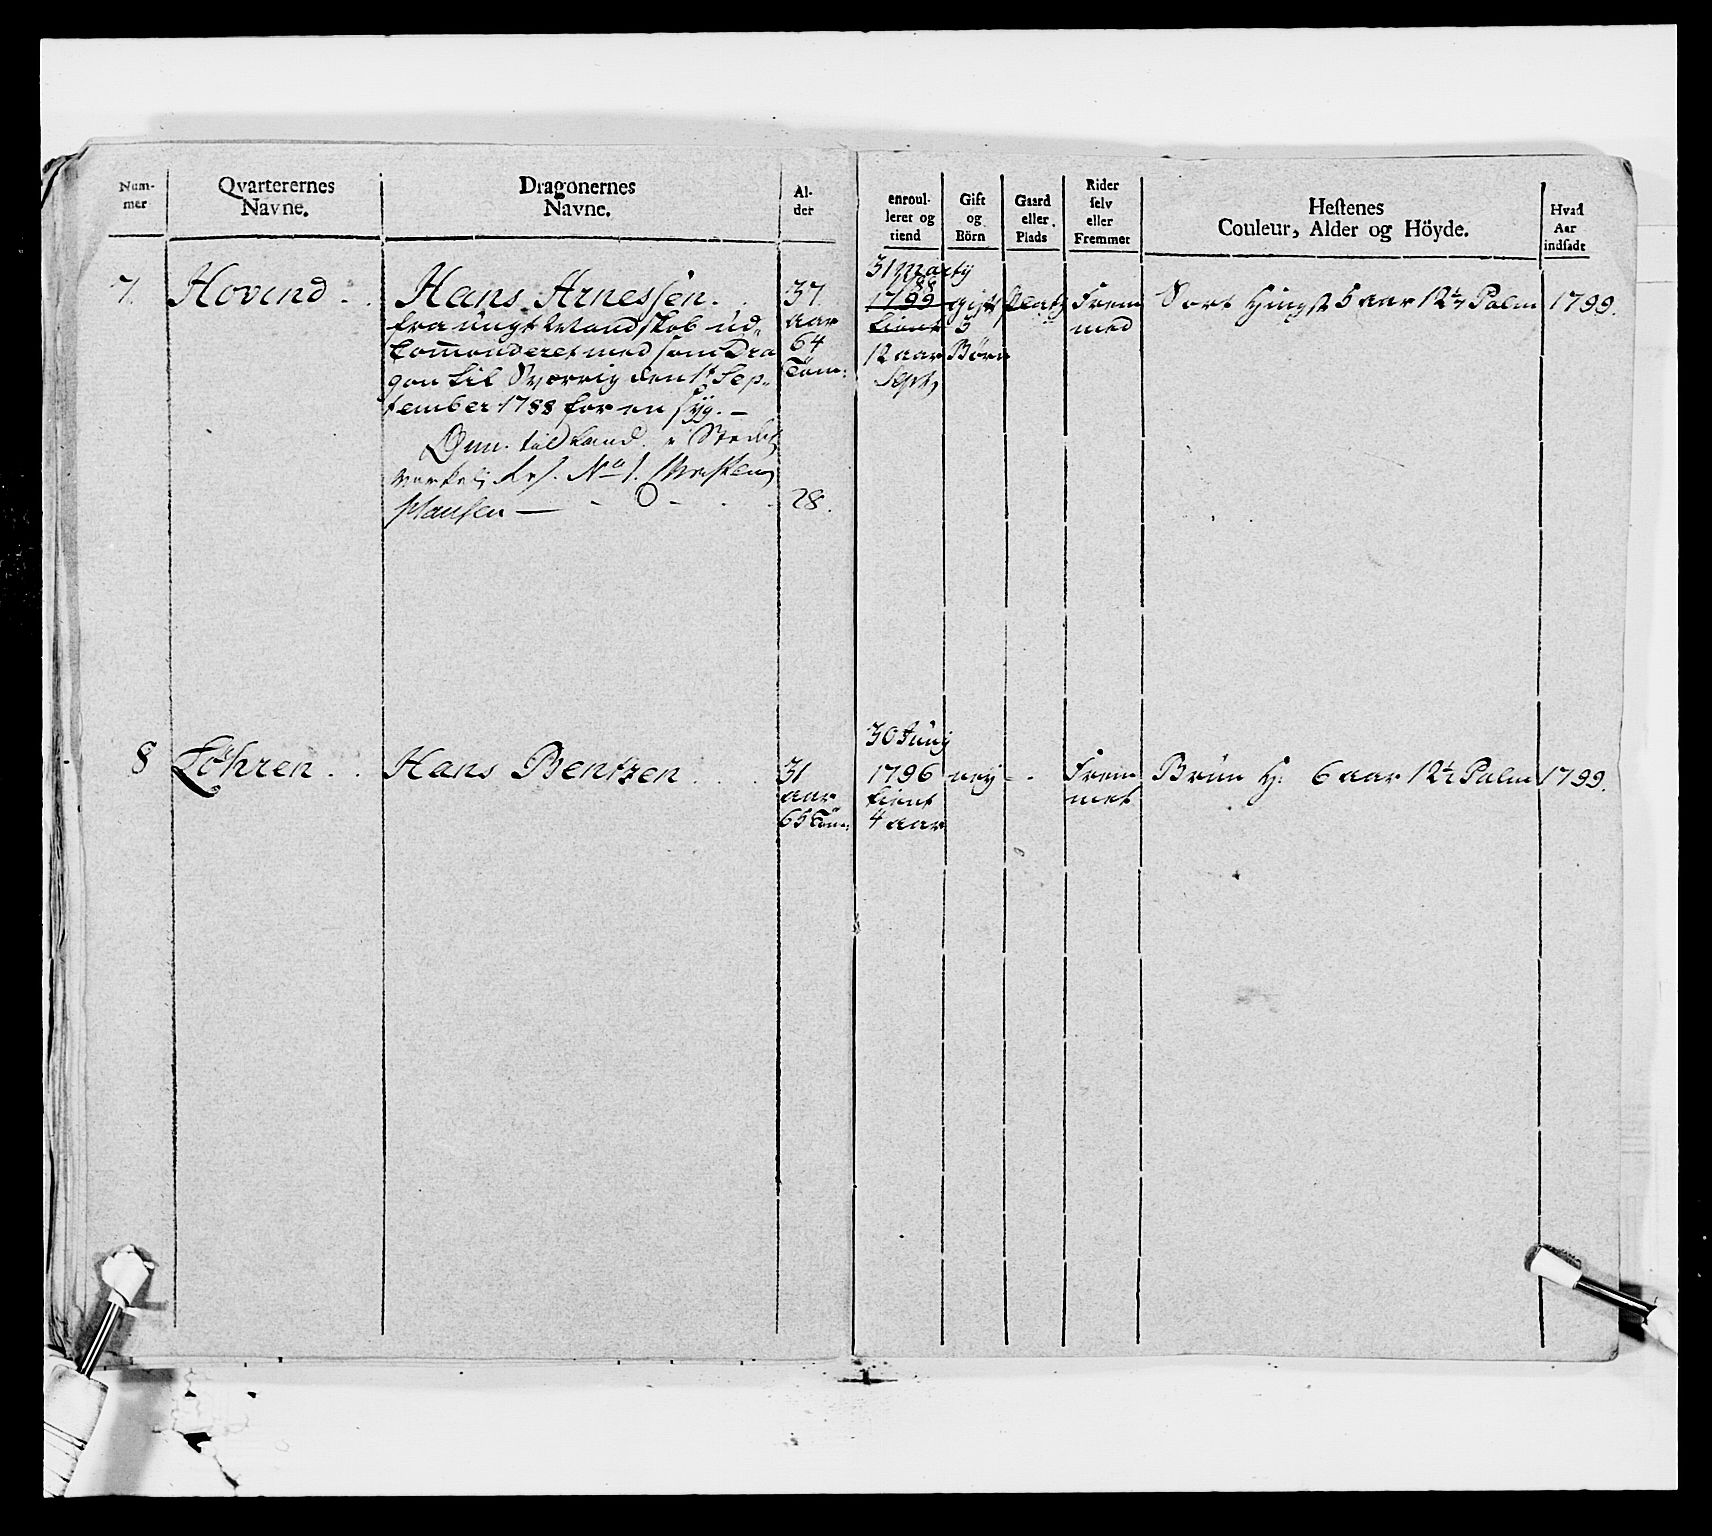 Num-
mer
Qvarterernes
Navne.
Dragonernes
Navne.
Al-
der
enroul-
leret og
tiend
Gift
og
Börn
Gaard
eller
Plads
Rider
selv
eller
Fremmet
Hestenes
Couleur, Alder og Höyde.
Hvad
Aar
indsadt
7.
Hovind
Hans Arnessen.
fra ungt Mandskab ud-
komanderet med som Dra
gon til Sverrig den 1t Sep-
tember 1788 for en syg. —
i Stedet
No 1.
Hansen —
37
aar
64
Tom:
28.
31 Marty
1788
1799
tient
12 aar
Sept,
gift
3
Børn
Platz
Frem
med
Sort Hingst 5 aar 12½ Palm
1799.
8
Löhren
Hans Bentzen
31
aar
65 Tom:
30 Juny
1796
tient
4 aar
ney
Frem
met
Brun H: 6 aar 12½ Palm
1799.